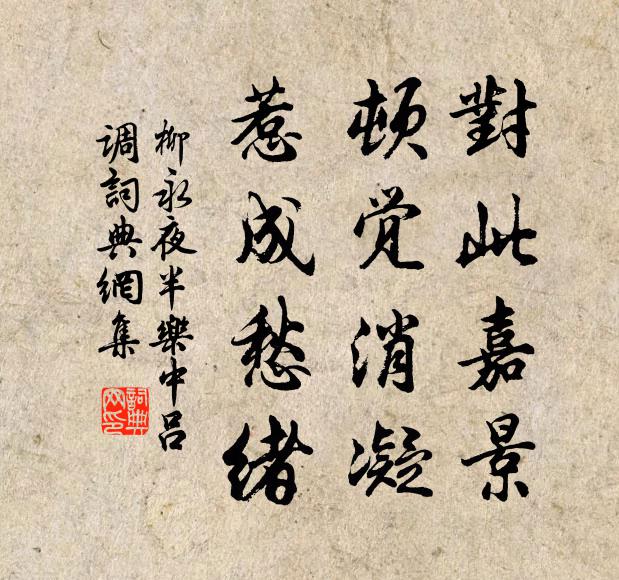 對此嘉景
頓觉消凝
惹成愁緒
柳永夜半樂中呂
调詞典網集
詞典
网印